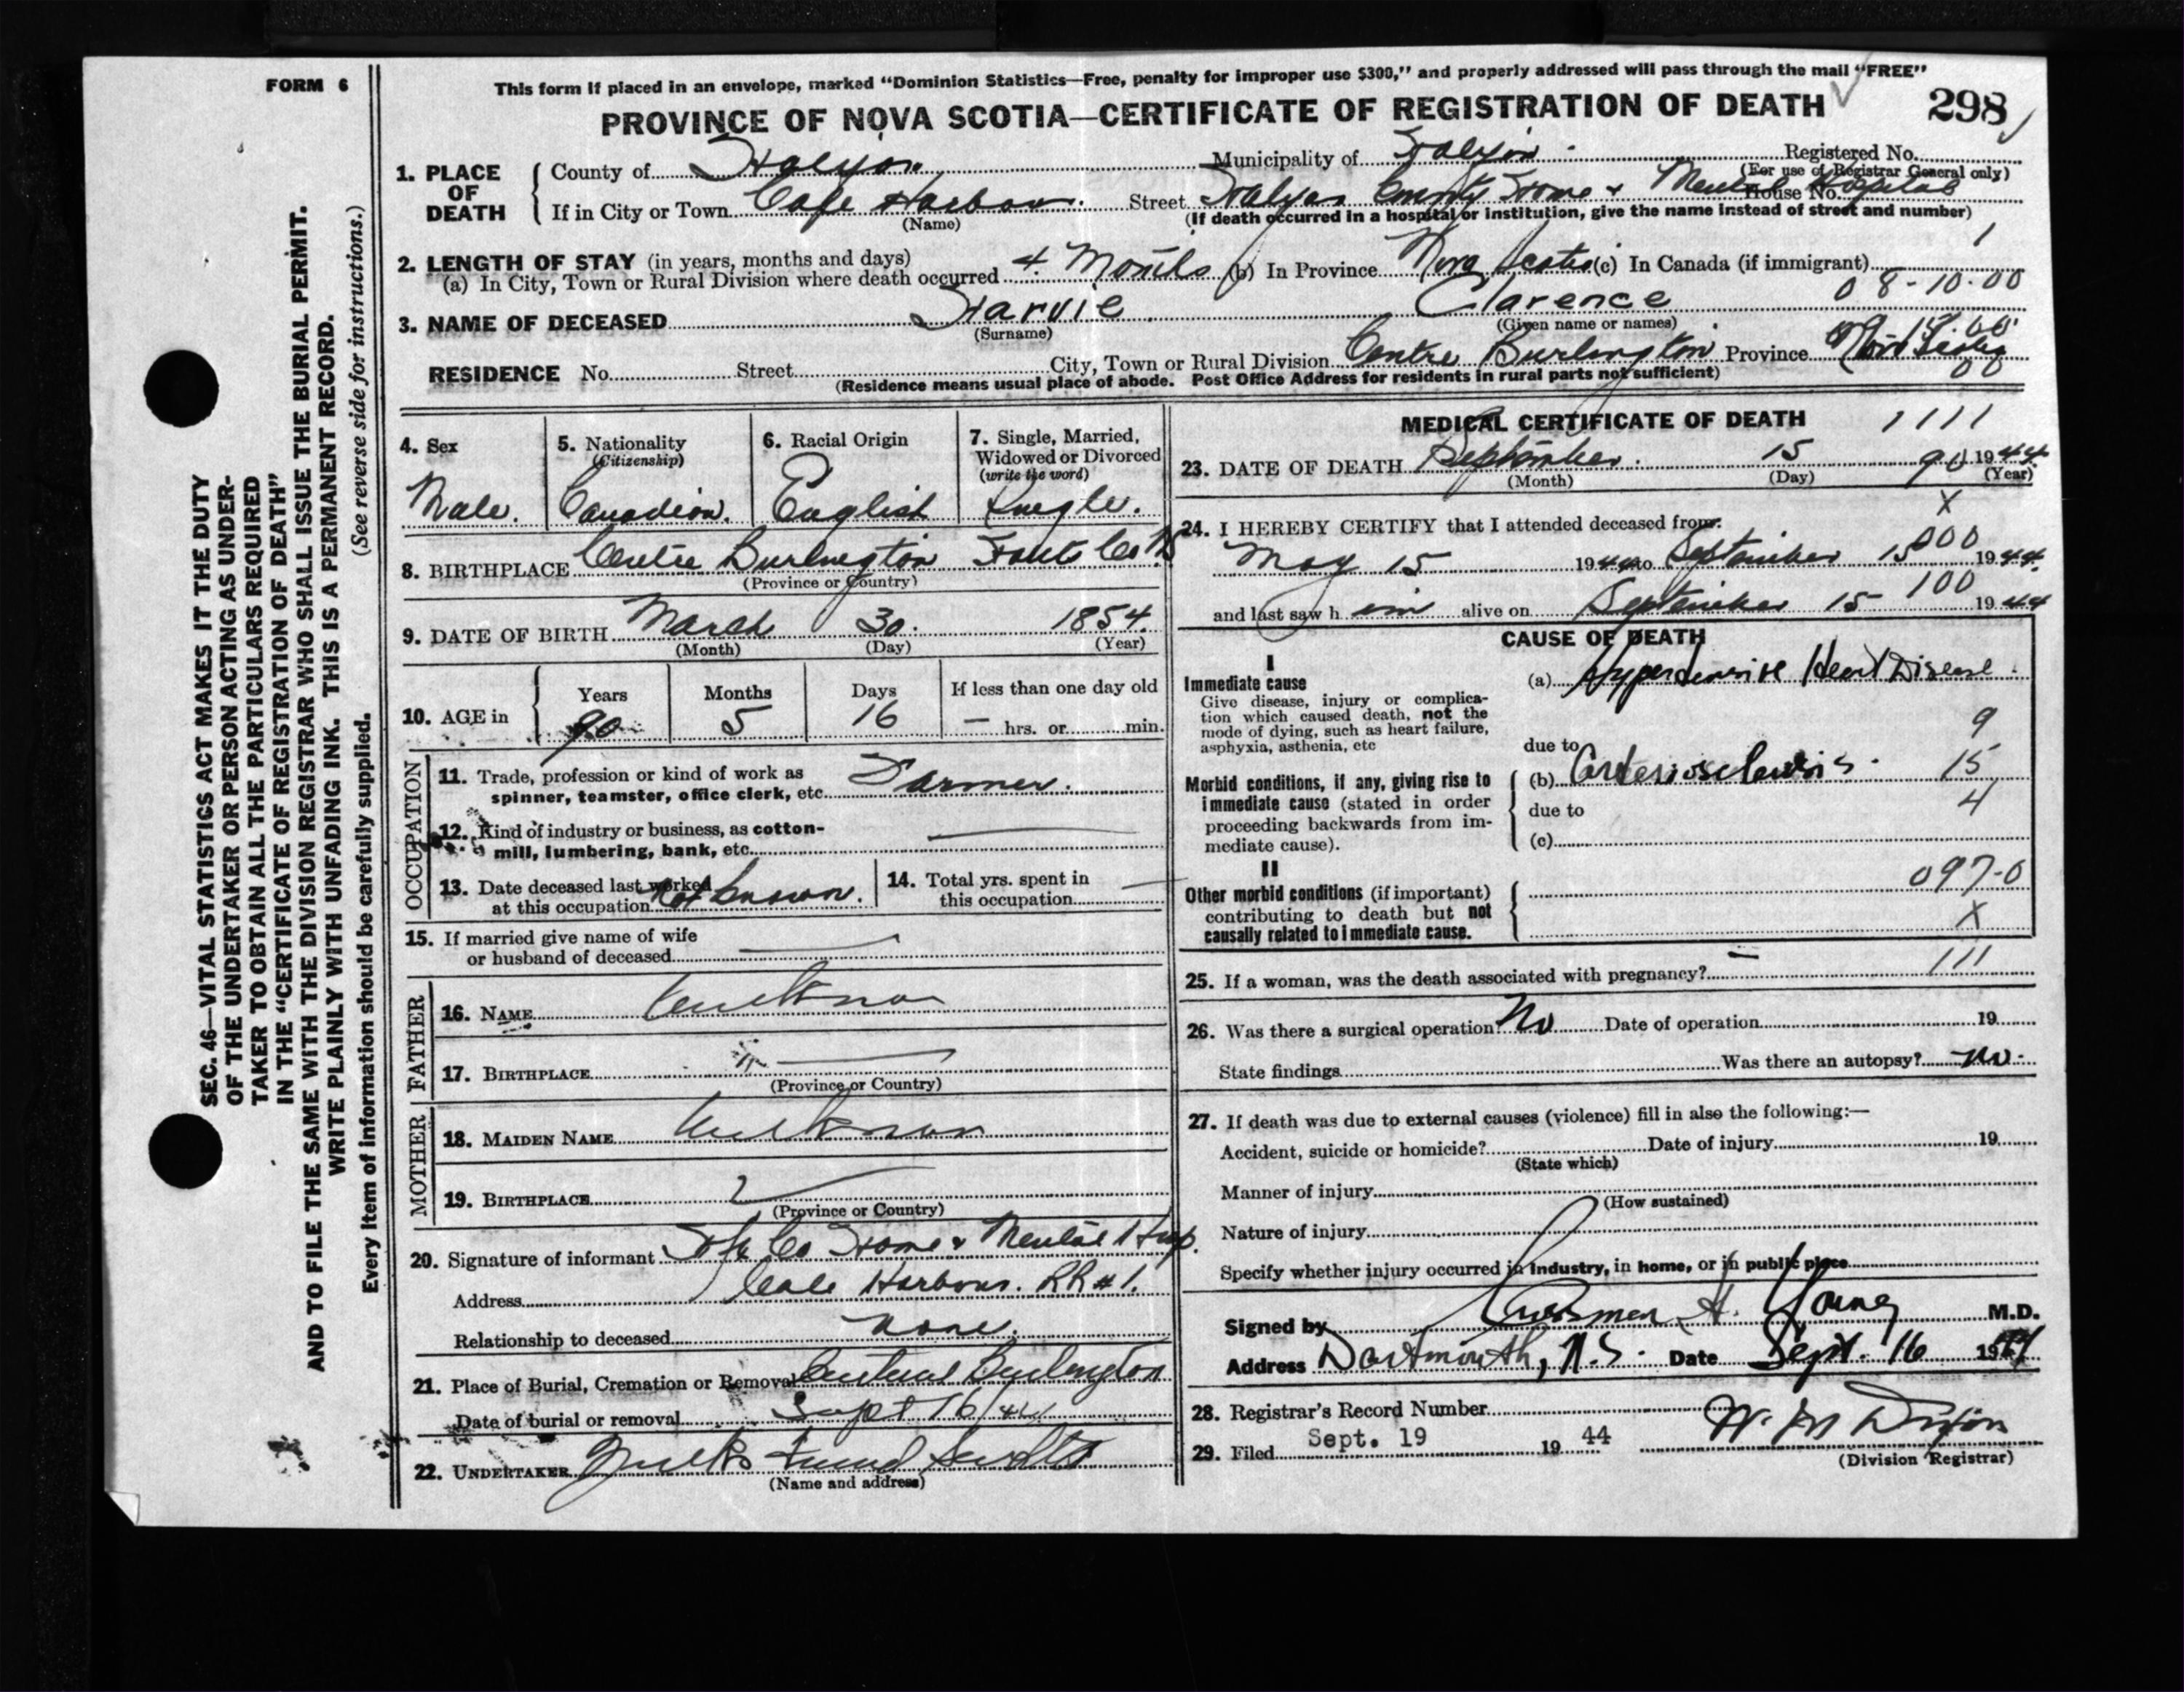 FORM 6
This form if placed in an envelope, marked "Dominion Statistics—Free, penalty for improper use $300," and properly addressed will pass through the mail "FREE"
PROVINCE OF NOVA SCOTIA—CERTIFICATE OF REGISTRATION OF DEATH 298
1. PLACE OF DEATH
County of Halifax Municipality of Halifax Registered No.
(For use of Registrar General only)
If in City or Town Cole Harbour. Street Halifax County Home & Mental Hospital House No.
(Name) (If death occurred in a hospital or institution, give the name instead of street and number)
1
2. LENGTH OF STAY (in years, months and days)
(a) In City, Town or Rural Division where death occurred 4 Months (b) In Province Nova Scotia (c) In Canada (if immigrant)
0 8-10-00
3. NAME OF DECEASED Harvie Clarence
(Surname) (Given name or names)
RESIDENCE No. Street City, Town or Rural Division Centre Burlington Province Nova Scotia
00
(Residence means usual place of abode. Post Office Address for residents in rural parts not sufficient)
4. Sex
Male.
5. Nationality
(Citizenship)
Canadian.
6. Racial Origin
English
7. Single, Married, Widowed or Divorced
(write the word)
Single.
8. BIRTHPLACE Centre Burlington Hants Co NS
(Province or Country)
9. DATE OF BIRTH March 30. 1854.
(Month) (Day) (Year)
10. AGE in
Years Months Days If less than one day old
90 5 16 — hrs. or min.
OCCUPATION
11. Trade, profession or kind of work as
spinner, teamster, office clerk, etc. Farmer.
12. Kind of industry or business, as cotton-
mill, lumbering, bank, etc.
13. Date deceased last worked
at this occupation Not known.
14. Total yrs. spent in
this occupation
15. If married give name of wife
or husband of deceased
FATHER
16. NAME Unknown
17. BIRTHPLACE "
(Province or Country)
MOTHER
18. MAIDEN NAME Unknown
19. BIRTHPLACE
(Province or Country)
20. Signature of informant Hfx Co Home & Mental Hosp.
Address Cole Harbour. RR #1.
Relationship to deceased None.
21. Place of Burial, Cremation or Removal Burlington
Date of burial or removal Sept 16/44
22. UNDERTAKER
(Name and address)
MEDICAL CERTIFICATE OF DEATH 1111
23. DATE OF DEATH September. 15 90 1944
(Month) (Day) (Year)
X
24. I HEREBY CERTIFY that I attended deceased from:
000
May 15 1944 to September 15 1944.
100
and last saw h im alive on September 15 1944
CAUSE OF DEATH
I
Immediate cause
Give disease, injury or complica-
tion which caused death, not the
mode of dying, such as heart failure,
asphyxia, asthenia, etc
(a) Hypertensive Heart Disease.
9
due to
Morbid conditions, if any, giving rise to
immediate cause (stated in order
proceeding backwards from im-
mediate cause).
(b) Arteriosclerosis. 15
due to 4
(c)
II
Other morbid conditions (if important)
contributing to death but not
causally related to immediate cause.
097-0
X
25. If a woman, was the death associated with pregnancy? — 111
26. Was there a surgical operation? No Date of operation 19
State findings Was there an autopsy? No.
27. If death was due to external causes (violence) fill in also the following:—
Accident, suicide or homicide? Date of injury 19
(State which)
Manner of injury
(How sustained)
Nature of injury
Specify whether injury occurred in industry, in home, or in public place
Signed by H. Young M.D.
Address Dartmouth, N.S. Date Sept. 16 1944
28. Registrar's Record Number
29. Filed Sept. 19 19 44
(Division Registrar)
SEC. 46—VITAL STATISTICS ACT MAKES IT THE DUTY
OF THE UNDERTAKER OR PERSON ACTING AS UNDER-
TAKER TO OBTAIN ALL THE PARTICULARS REQUIRED
IN THE "CERTIFICATE OF REGISTRATION OF DEATH"
AND TO FILE THE SAME WITH THE DIVISION REGISTRAR WHO SHALL ISSUE THE BURIAL PERMIT.
WRITE PLAINLY WITH UNFADING INK. THIS IS A PERMANENT RECORD.
Every item of information should be carefully supplied. (See reverse side for instructions.)